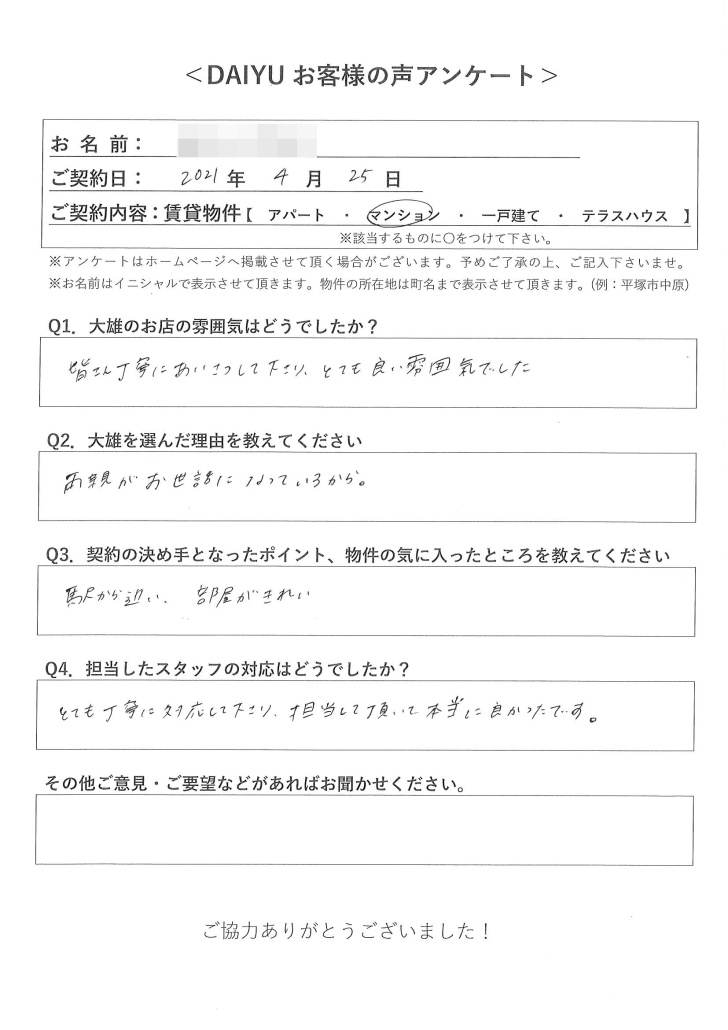 ＜DAIYU お客様の声アンケート＞
お 名 前：
ご契約日： 2021 年 4 月 25 日
ご契約内容：賃貸物件【 アパート ・ マンション ・ 一戸建て ・ テラスハウス 】
※該当するものに〇をつけて下さい。
※アンケートはホームページへ掲載させて頂く場合がございます。予めご了承の上、ご記入下さいませ。
※お名前はイニシャルで表示させて頂きます。物件の所在地は町名まで表示させて頂きます。(例：平塚市中原)
Q1．大雄のお店の雰囲気はどうでしたか？
皆さん丁寧にあいさつして下さり、とても良い雰囲気でした
Q2．大雄を選んだ理由を教えてください
両親がお世話になっているから。
Q3．契約の決め手となったポイント、物件の気に入ったところを教えてください
駅から近い、 部屋がきれい
Q4．担当したスタッフの対応はどうでしたか？
とても丁寧に対応して下さり、担当して頂いて本当に良かったです。
その他ご意見・ご要望などがあればお聞かせください。
ご協力ありがとうございました！